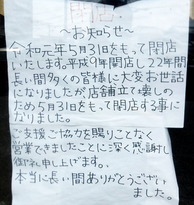 閉店
～お知らせ～
令和元年5月31日をもって閉店
いたします。平成9年開店し22年間
長い間多くの皆様に大変お世話
になりましたが店舗立て壊しの
ため5月31日をもって閉店する事に
なりました。
ご支援ご協力を賜りことなく
営業できましたことに深く感謝し
御礼申し上げます。
本当に長い間ありがとうござい
ました。